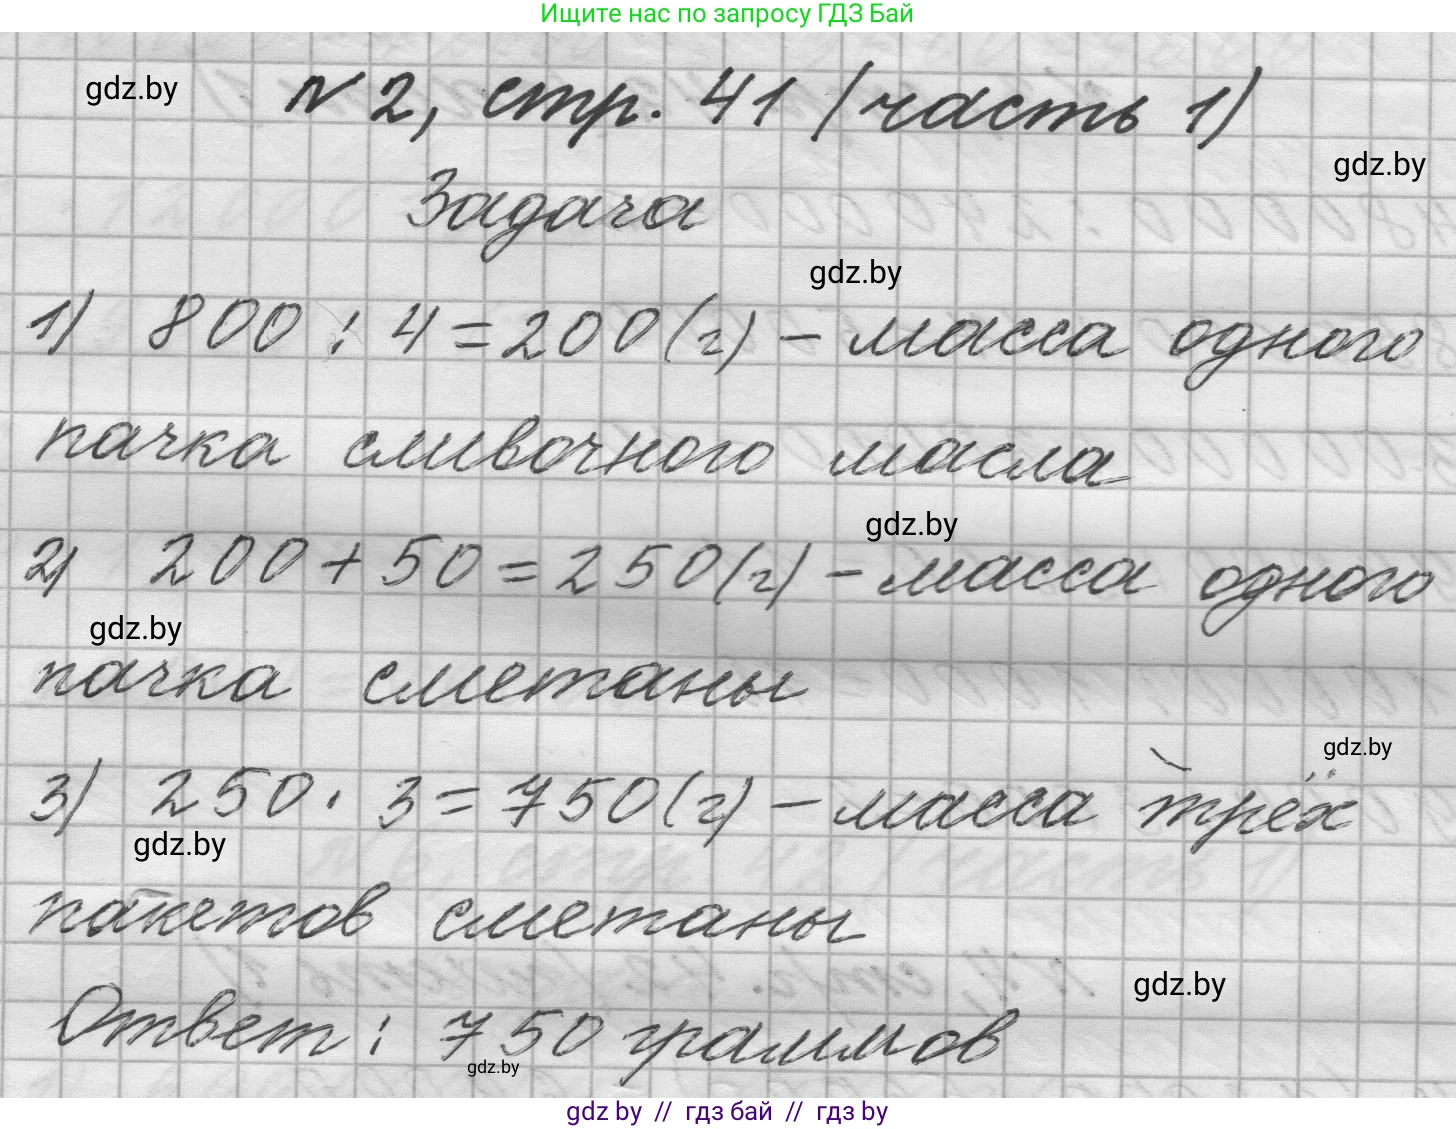 Ищите нас по запросу ГДЗ Бай
gdz.by
№2, стр. 41 (часть 1)
gdz.by
Задача
gdz.by
1) 800 : 4 = 200 (г) – масса одного
пачка сливочного масла
gdz.by
2) 200 + 50 = 250 (г) – масса одного
gdz.by
пачка сметаны
gdz.by
3) 250 · 3 = 750 (г) – масса трёх
gdz.by
пакетов сметаны
gdz.by
Ответ: 750 граммов
gdz.by
gdz by // гдз бай // гдз by